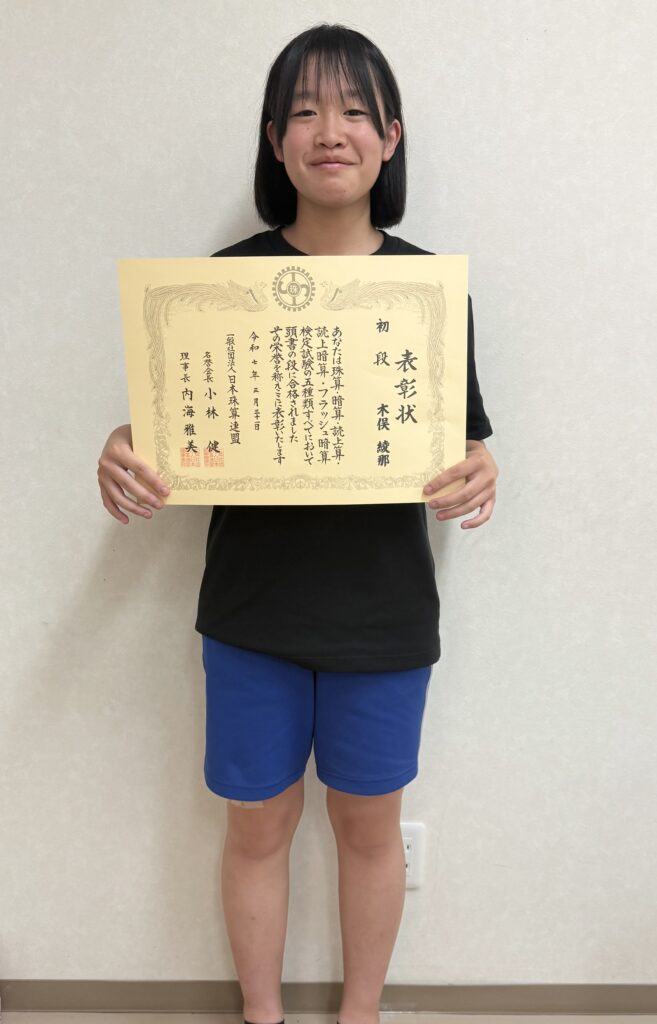 表彰状
初段 木俣 綾那
あなたは珠算・暗算・読上算・
読上暗算・フラッシュ暗算
検定試験の五種類すべてにおいて
頭書の段に合格されました
その栄誉を称えここに表彰いたします
令和七年
一般社団法人日本珠算連盟
名誉会長 小林 健
理事長 内海 雅美